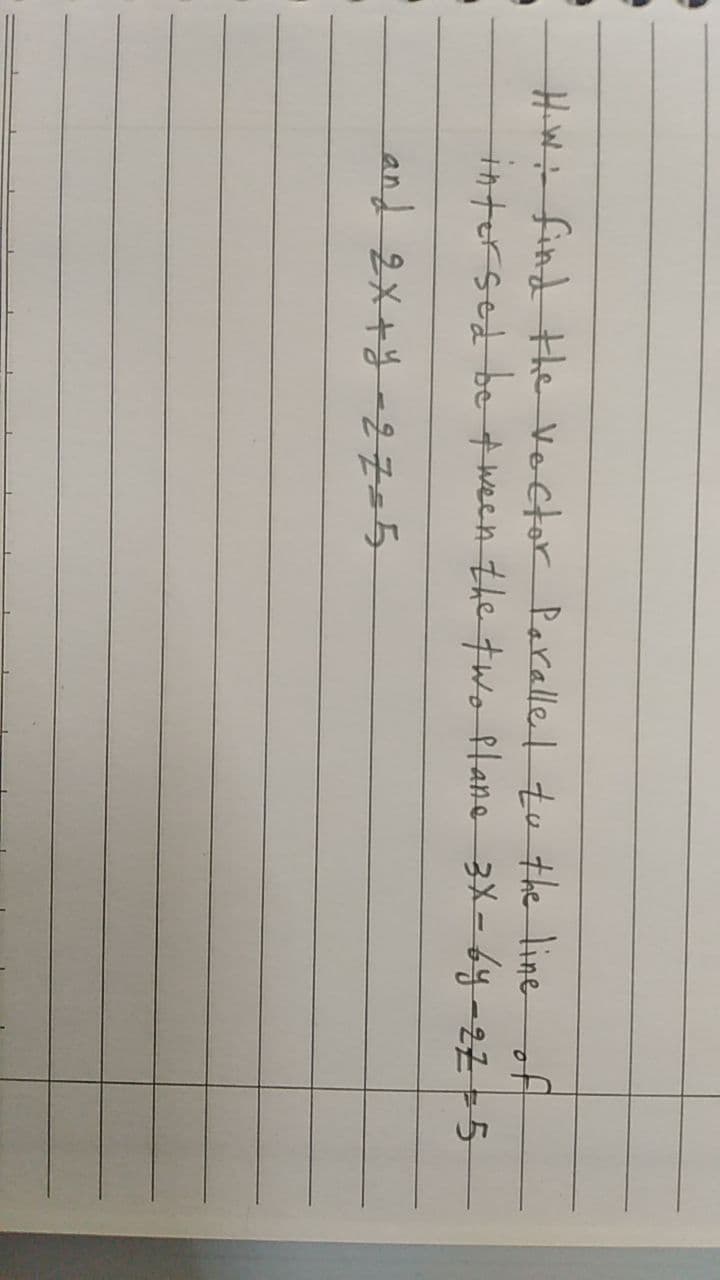 H.W:- find the Vector Parallel to the line of
intersed between the two plane 3x-6y-2z=5
and 2x+y-2z=5